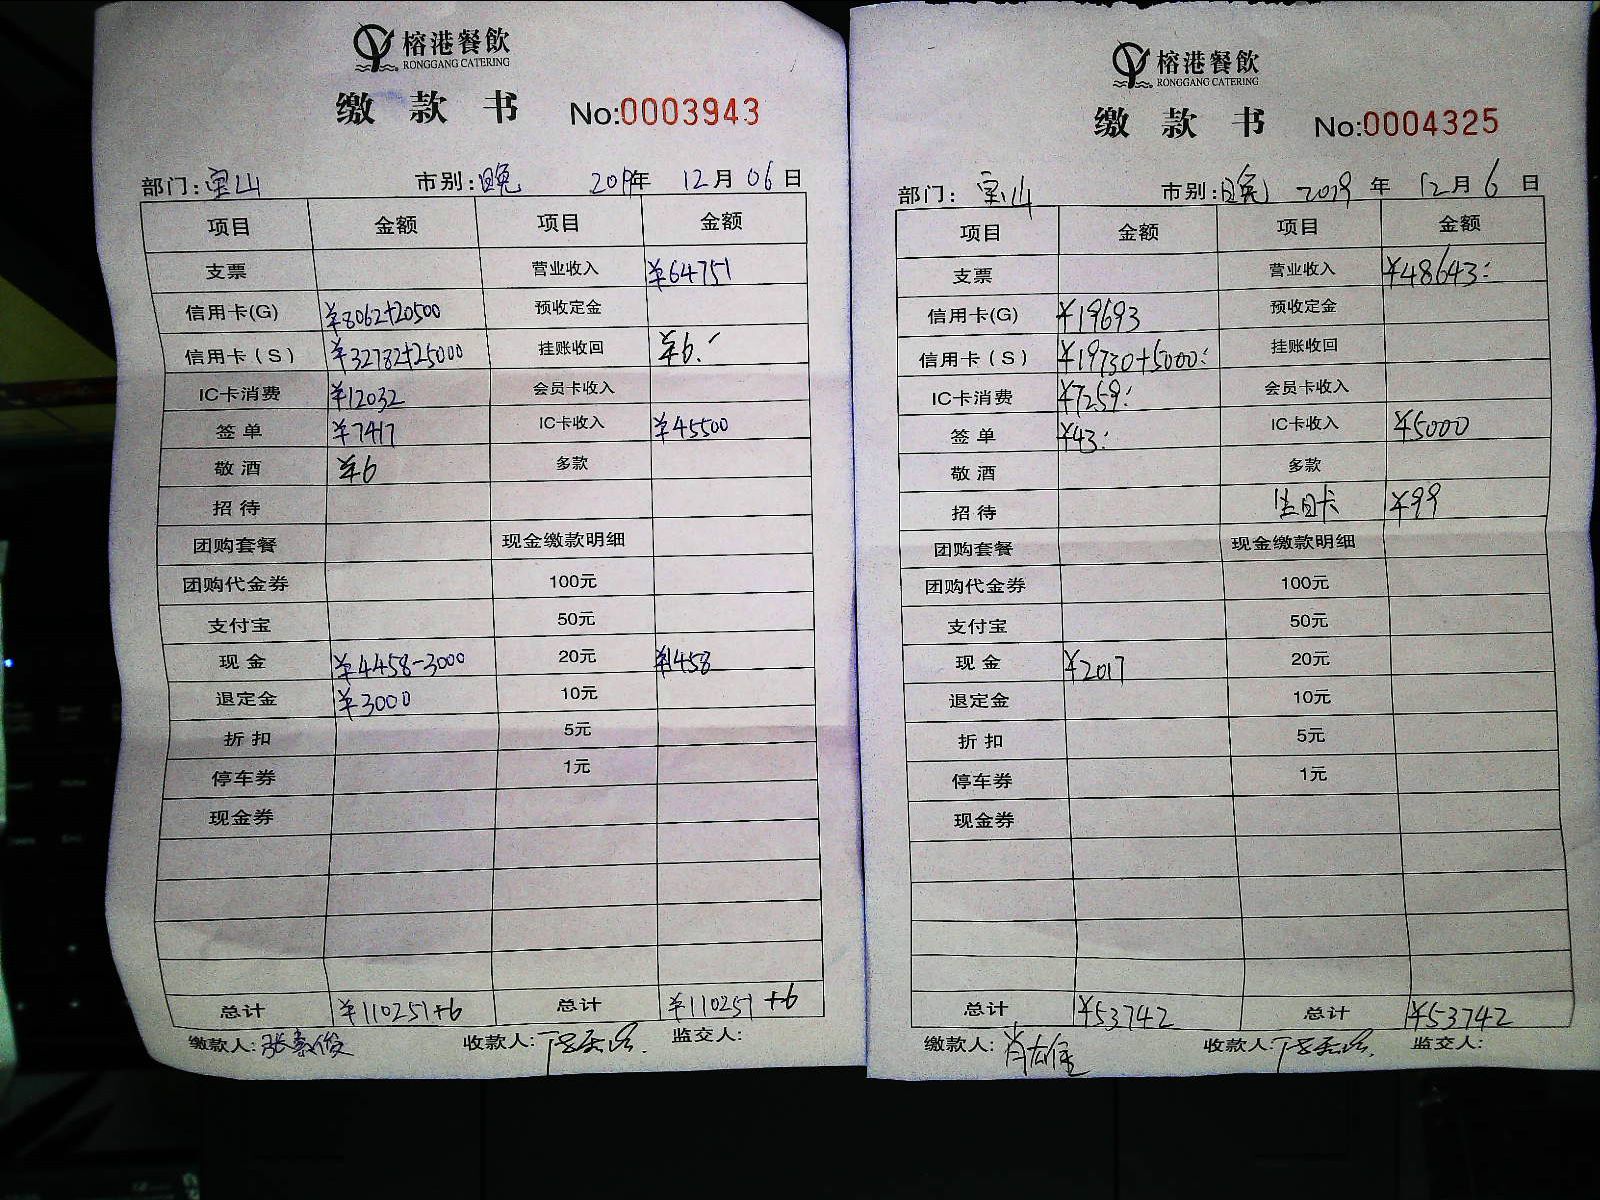 榕港餐飲
RONGGANG CATERING
缴款书 No:0003943
部门:宝山 市别:晚 2019年 12月06日
项目 金额 项目 金额
支票 营业收入 ¥64751
信用卡(G) ¥8062+20500 预收定金
信用卡(S) ¥32782+25000 挂账收回 ¥6.-
IC卡消费 ¥12032 会员卡收入
签单 ¥7417 IC卡收入 ¥45500
敬酒 ¥6 多款
招待
团购套餐 现金缴款明细
团购代金券 100元
支付宝 50元
现金 ¥4458-3000 20元 ¥1458
退定金 ¥3000 10元
折扣 5元
停车券 1元
现金券
总计 ¥110251+6 总计 ¥110251+6
缴款人: 收款人: 监交人:
榕港餐飲
RONGGANG CATERING
缴款书 No:0004325
部门:宝山 市别:晚 2019年 12月6日
项目 金额 项目 金额
支票 营业收入 ¥48643:
信用卡(G) ¥19693 预收定金
信用卡(S) ¥19730+5000: 挂账收回
IC卡消费 ¥7259: 会员卡收入
签单 ¥43: IC卡收入 ¥5000
敬酒 多款
招待 生日卡 ¥99
团购套餐 现金缴款明细
团购代金券 100元
支付宝 50元
现金 ¥2017 20元
退定金 10元
折扣 5元
停车券 1元
现金券
总计 ¥53742 总计 ¥53742
缴款人: 收款人: 监交人: